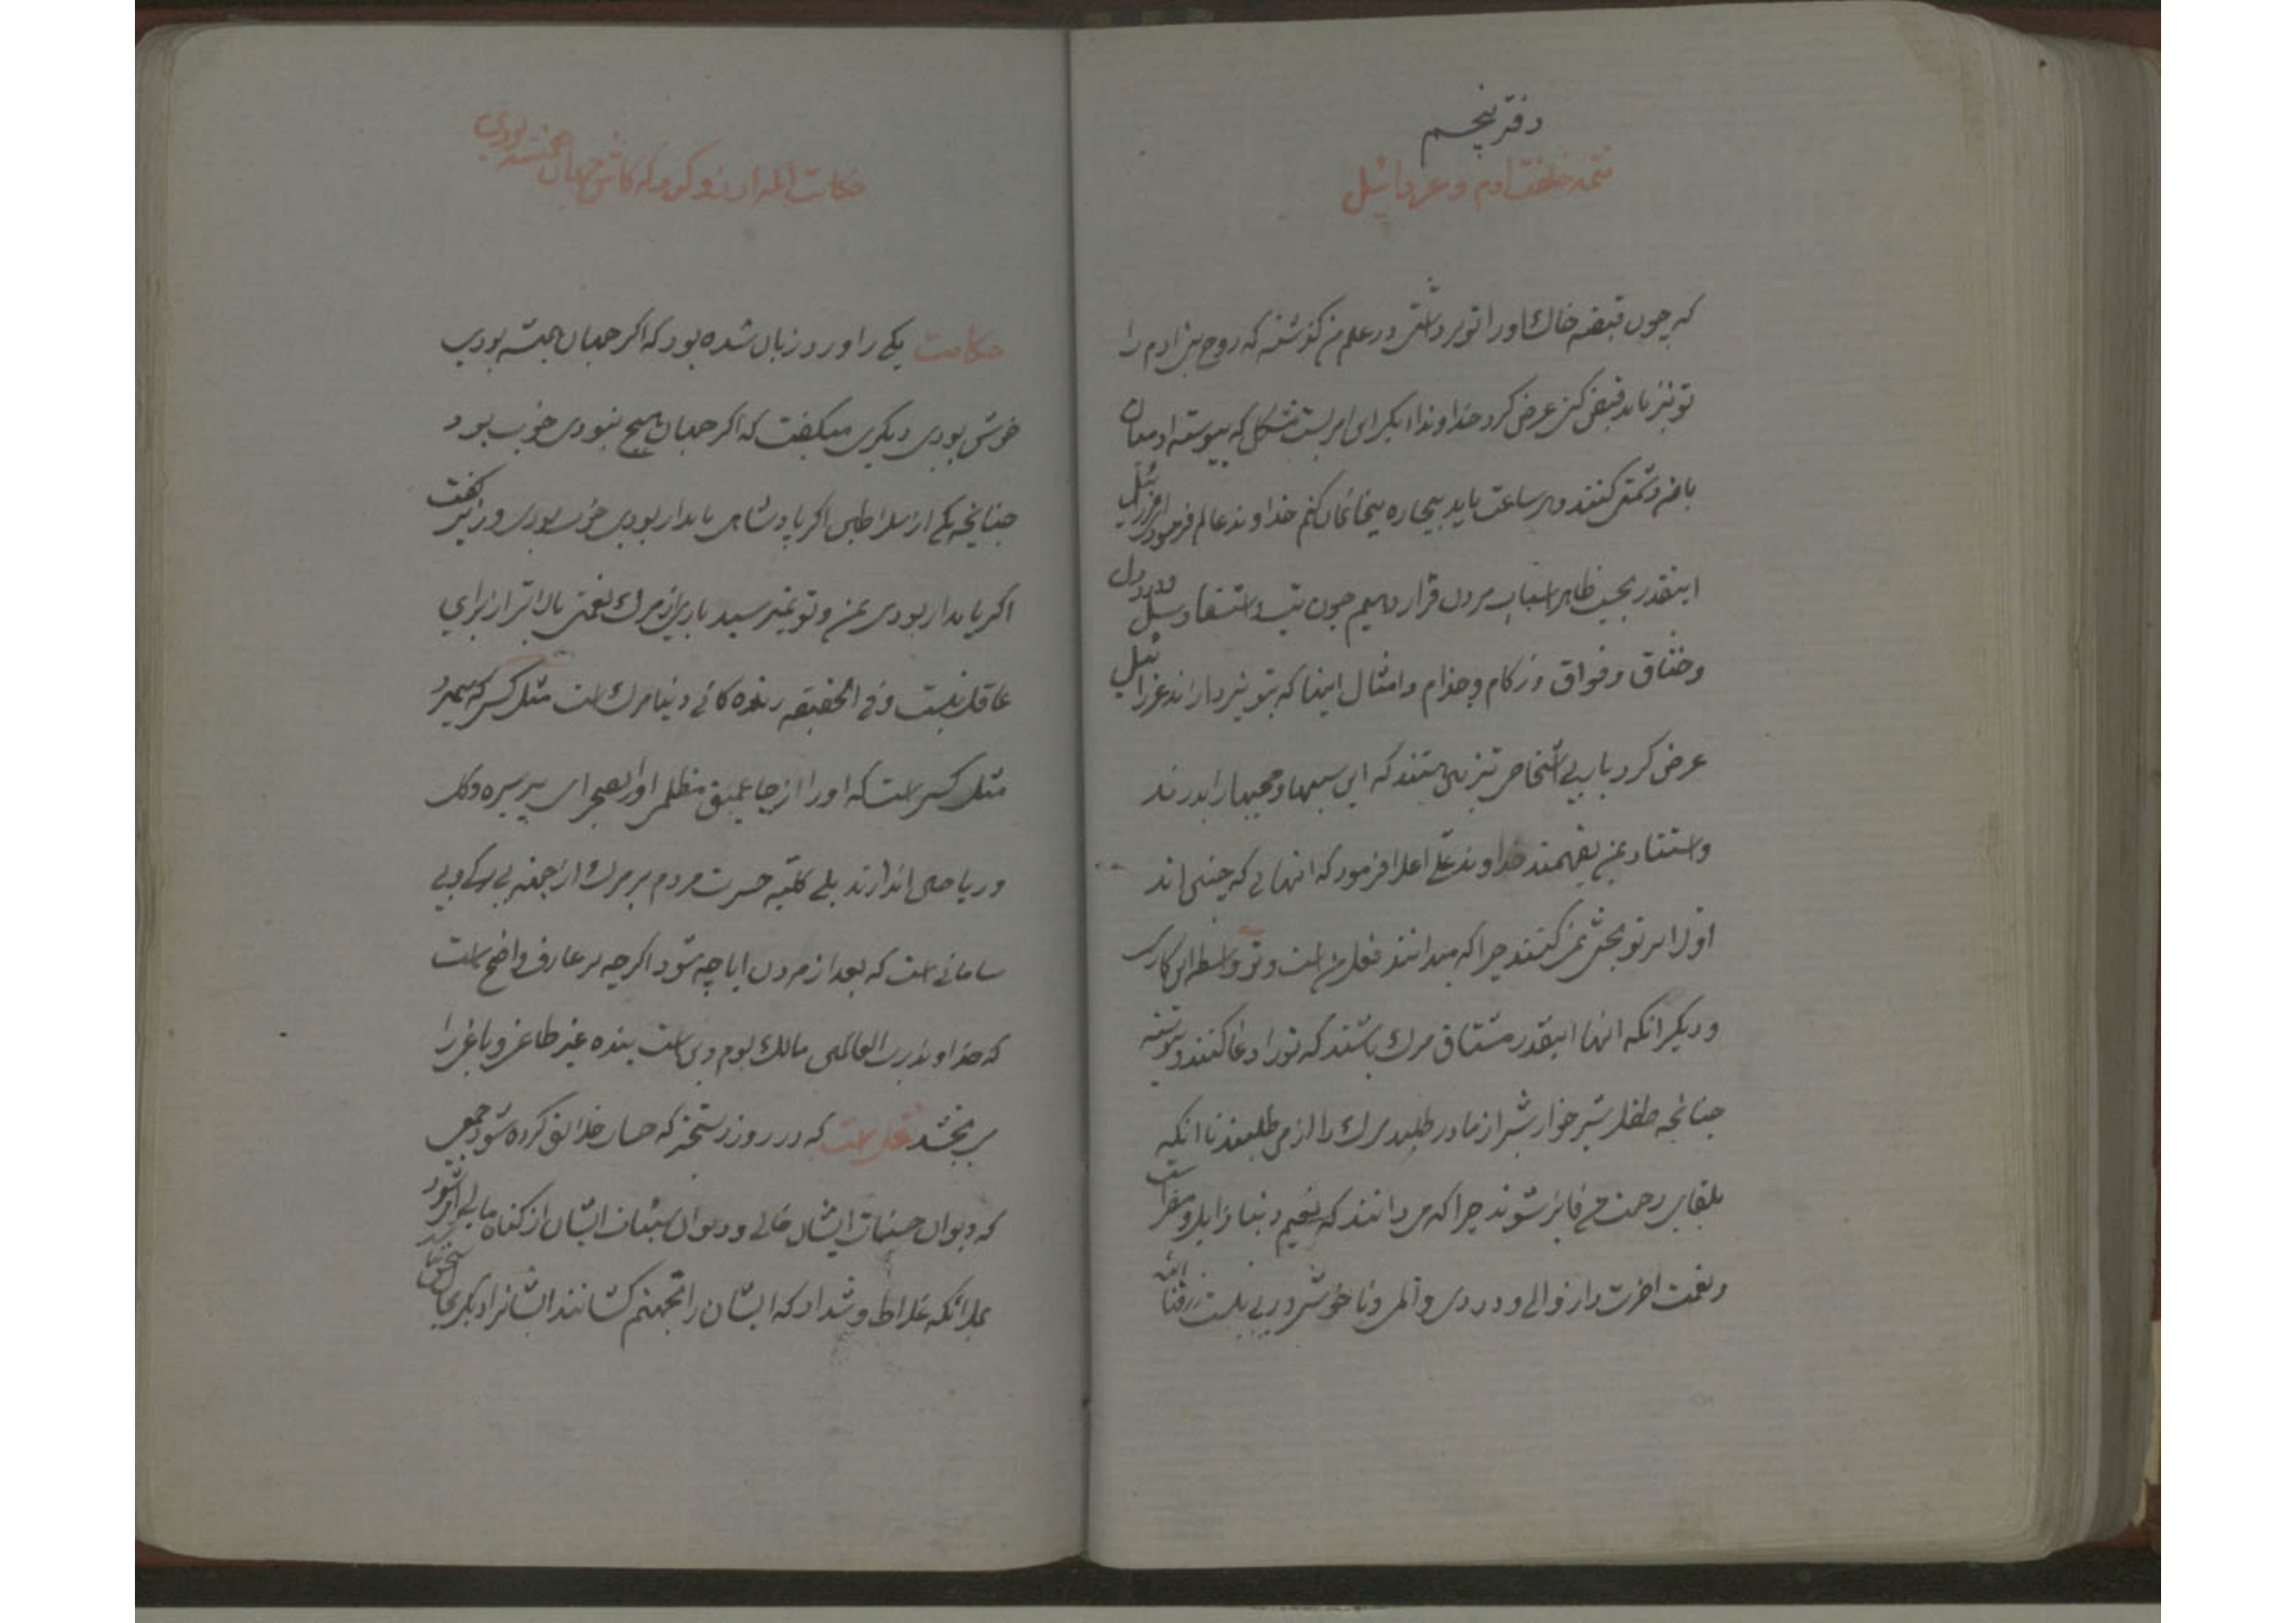 دفتر پنجم
تتمه خلقت ادم و عزرائیل
که چون قبضه خاك اورا تو برداشتی در علم من کذشته که روح بنی ادم را
تو نیز باید قبض کنی عرض کرد خداوندا این امریست مشکل که پیوسته
با من دشمنی کنند و هر ساعت باید بیچاره بیخانمان کنم خداوند عالم فرمود
اینقدر بحسب ظاهر اسباب مردن قرار دهیم چون تب و استسقا و سل
و خناق و فواق و زکام و جذام و امثال اینها که بتو نپردازند عزرائیل
عرض کرد یا رب اشخاص تیز بین هستند که این سببها و حجبها را بدرند
و استناد بمن بفهمند خداوند علی اعلا فرمود که انهائی که چنین اند
اولا بر تو بحثی نمی کنند چرا که میدانند فعل من است و تو واسطه این کاری
و دیکر انکه انها اینقدر مشتاق مرك باشند که تورا دعا کنند
چنانچه طفل شیر خوار شیر از مادر طلبد مرك را از من طلبند تا انکه
بلقای رحمت من فایز شوند چرا که می دانند که نعیم دنیا زایل و
و نعمت اخرت را زوالی و دردی و المی و ناخوشی در پی نیست رزقنا الله
حکایت انکه ارزو کرد که کاش جهان همیشه بودی
حکایت یکی را ورد زبان شده بود که اکر جهان همیشه بودی
خوش بودی دیکری میکفت که اکر جهان هیچ نبودی خوب بود
چنانچه یکی از سلاطین اکر پادشاهی پایدار بودی خوب بودی وزیر کفت
اکر پایدار بودی بمن و تو نمیرسید باری از مرك نعمتی بالاتر از برای
عاقل نیست و فی الحقیقه زنده کانی دنیا مرك است مثل کسی که بمیرد
مثل کسی است که اورا از چاه عمیق مظلم اورا بصحرای پر سبزه و کل
و ریاحین اندازند بلی کلیه حسرت مردم بر مرك از جهة بی برکی و بی
سامانی است که بعد از مردن ایا چه شود اکرچه بر عارف واضح است
که خداوند رب العالمین مالك یوم دین است بنده غیر طاغی و باغی را
می بخشد نقل است که در روز رستخیز که حساب خلایق کرده شود جمعی
که دیوان حسنات ایشان خالی و دیوان سیئات ایشان از کناه
بملائکه غلاظ و شداد که ایشان را بجهنم کشانند ایشانرا